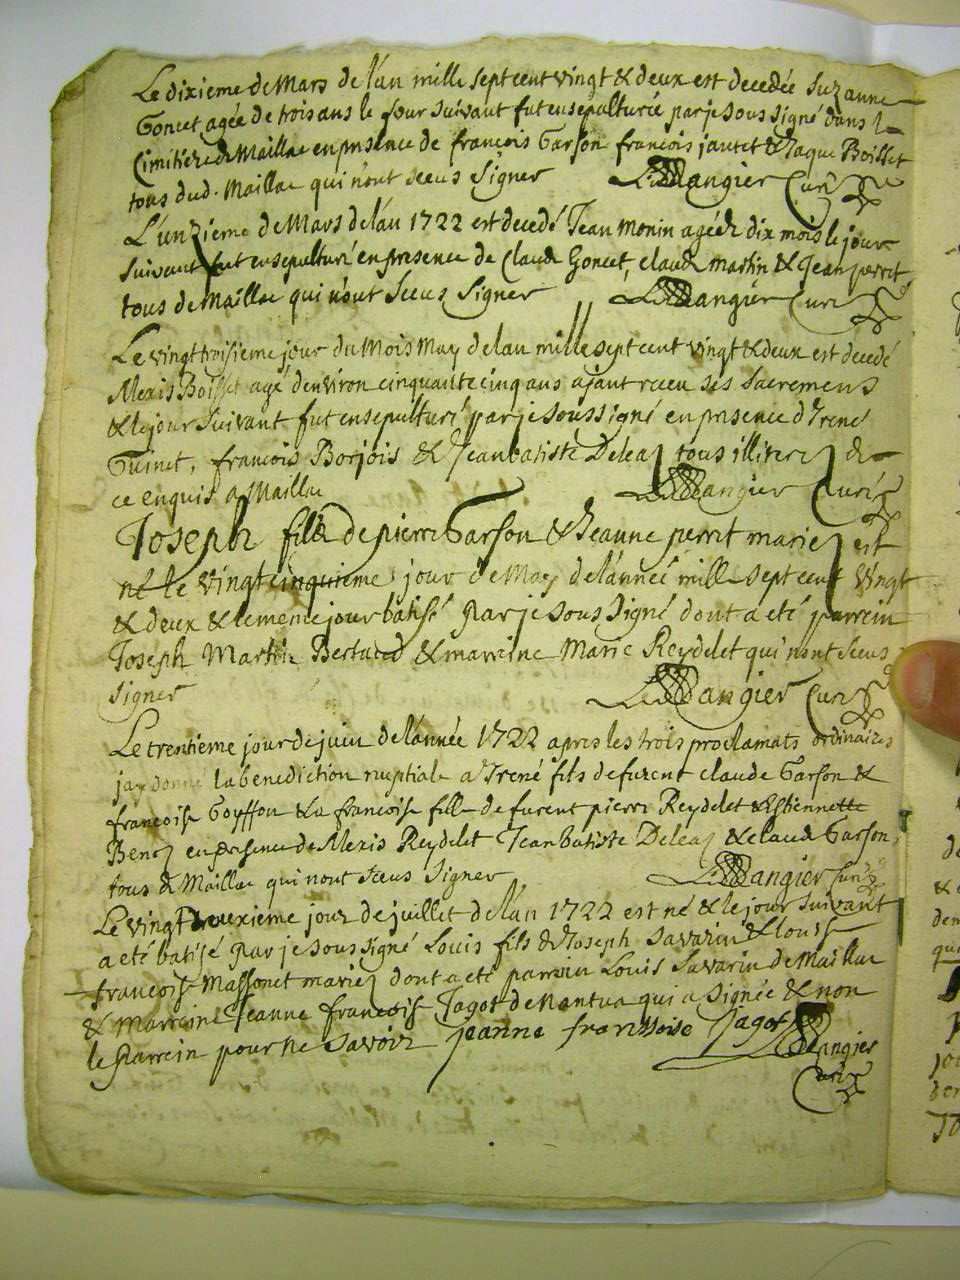 Le dixieme de Mars de l'an mille sept cent vingt & deux est decedée Suzanne
Goncet agée de trois ans le jour suivant fut ensepulturée par je sous signé dans le
Cimitiere de Maillac en pnsence de françois Garson françois jantet & Jaque Boisset
tous dud. Maillac qui n'ont sceus signer Dangier Curé
L'unzieme de Mars de l'an 1722 est decedé Jean Monin agé de dix mois le jour
suivant fut ensepulturé en presence de Claude Goncet, claude martin & Jean perret
tous de Maillac qui n'ont sceus signer Dangier Curé
Le vingt troisieme jour du Mois May de l'an mille sept cent vingt & deux est decedé
Alexis Boisset agé denviron cinquante cinq ans ajant receu ses sacremens
& le jour suivant fut ensepulturé par je soussigné en prsence d'Irené
Guinet, françois Borjois & Jean batiste Deleaz tous illiterez de
ce enquis a Maillac Dangier Curé
Joseph fils de pierre Garson & Jeanne perret mariez est
né le vingt cinquieme jour de May de l'anneé mille sept cent vingt
& deux & le meme jour batisé par je sous signé dont a eté parrein
Joseph Martin Bertaud & marreine Marie Reydelet qui n'ont sceus
signer Dangier Curé
Le trentieme jour de juin de l'année 1722 apres les trois proclamats ordinaires
jay donné la benediction nuptiale a Irené fils de furent claude Garson &
françoise Goyffon & a françoise fille de furent pierre Reydelet & Estiennette
Benoz en presence de Alexis Reydelet Jean batiste Deleaz & claude Garson,
tous de Maillac qui n'ont sceus signer Dangier Curé
Le vingt deuxieme jour de juillet de l'an 1722 est né & le jour suivant
a eté batisé par je sous signé Louis fils de Joseph Savarin & louise
françoise Massonet mariez dont a eté parrain Louis Savarin de Maillac
& Marreine Jeanne françoise Jagot de Nantua qui a signée & non
le parrein pour ne savoir jeanne franssoise Jagot Dangier
Curé